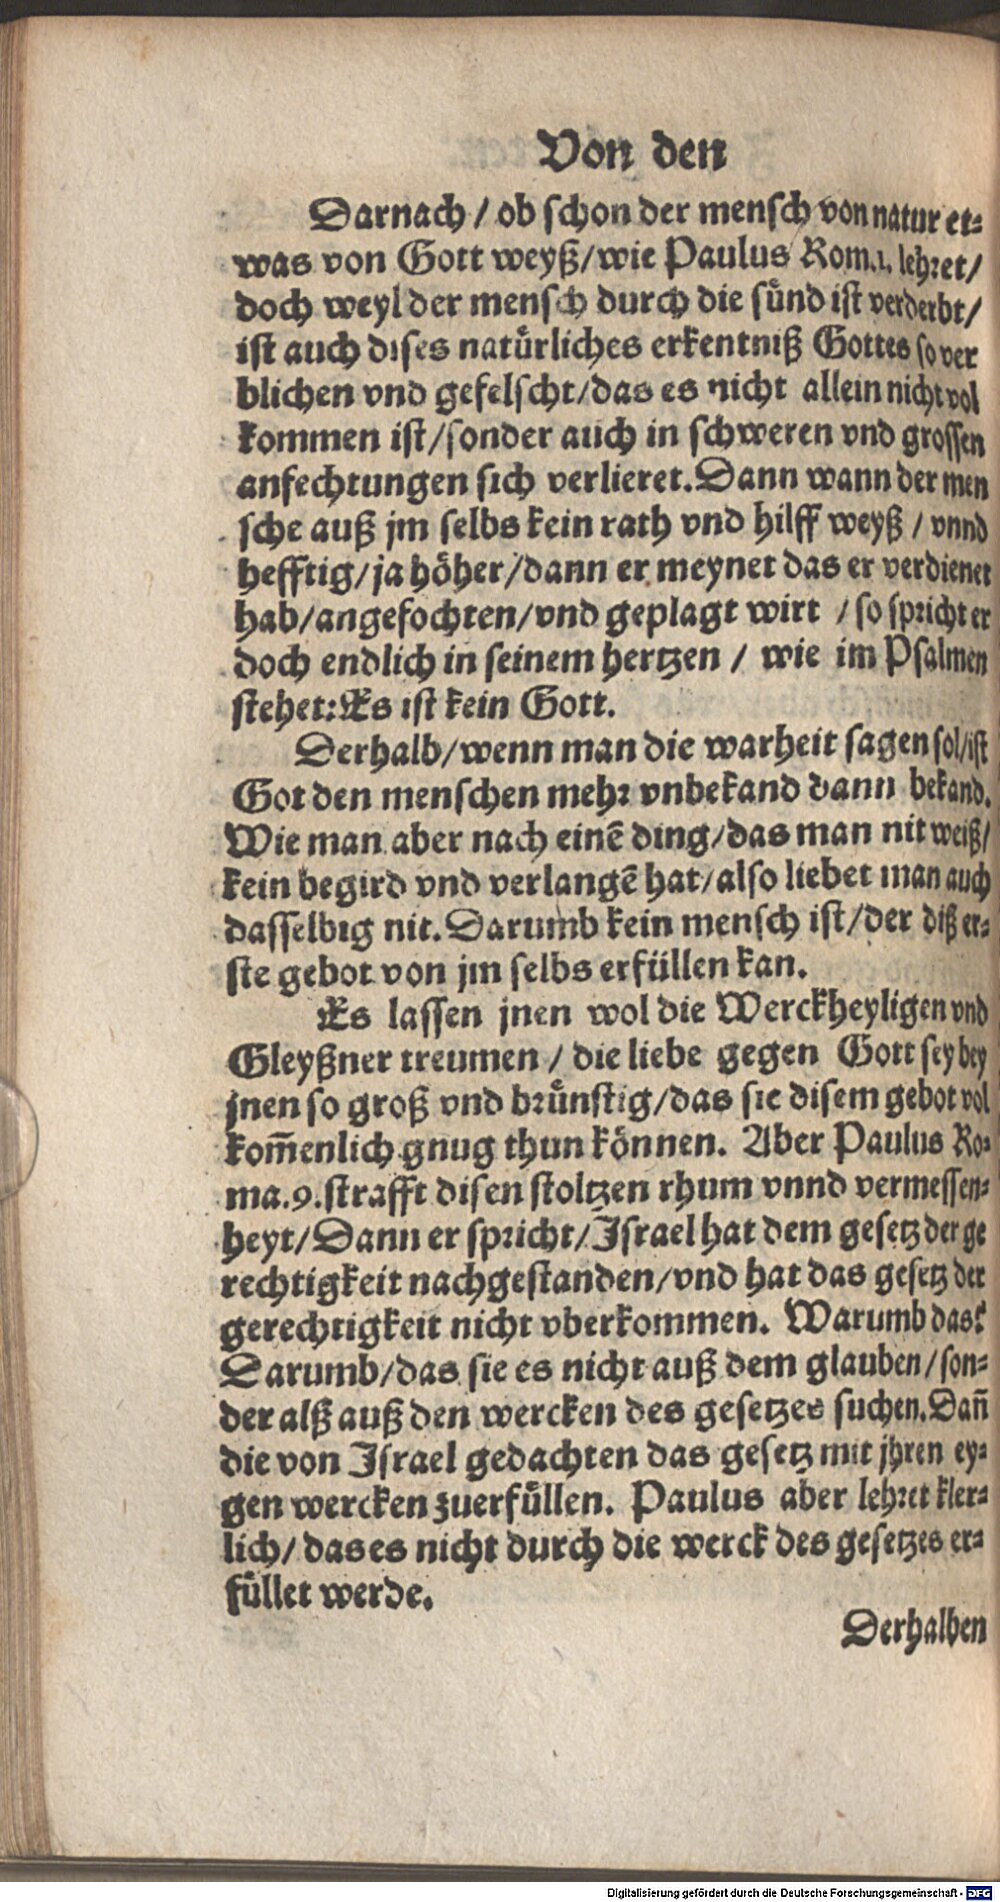 Von den
Darnach / ob schon der mensch von natur et⸗
was von Gott weyß/wie Paulus Rom.1. lehret/
doch weyl der mensch durch die sünd ist verderbt/
ist auch dises natürliches erkentniß Gottes so ver
blichen vnd gefelscht/das es nicht allein nicht vol
kommen ist/sonder auch in schweren vnd grossen
anfechtungen sich verlieret. Dann wann der men
sche auß jm selbs kein rath vnd hilff weyß / vnnd
hefftig/ja höher/dann er meynet das er verdienet
hab/angefochten/vnd geplagt wirt / so spricht er
doch endlich in seinem hertzen / wie im Psalmen
stehet: Es ist kein Gott.
Derhalb/wenn man die warheit sagen sol/ist
Got den menschen mehr vnbekand dann bekand.
Wie man aber nach einē ding/das man nit weiß/
kein begird vnd verlangē hat/also liebet man auch
dasselbig nit. Darumb kein mensch ist/der diß er⸗
ste gebot von jm selbs erfüllen kan.
Es lassen jnen wol die Werckheyligen vnd
Gleyßner treumen / die liebe gegen Gott sey bey
jnen so groß vnd brünstig/das sie disem gebot vol
kom̄enlich gnug thun können. Aber Paulus Ro⸗
ma.9.strafft disen stoltzen rhum vnnd vermessen⸗
heyt/Dann er spricht/Israel hat dem gesetz der ge
rechtigkeit nachgestanden/vnd hat das gesetz der
gerechtigkeit nicht vberkommen. Warumb das?
Darumb/das sie es nicht auß dem glauben/son⸗
der alß auß den wercken des gesetzes suchen. Dan̄
die von Israel gedachten das gesetz mit jhren ey⸗
gen wercken zuerfüllen. Paulus aber lehret kler⸗
lich/das es nicht durch die werck des gesetzes er⸗
füllet werde.
Derhalben
Digitalisierung gefördert durch die Deutsche Forschungsgemeinschaft - DFG